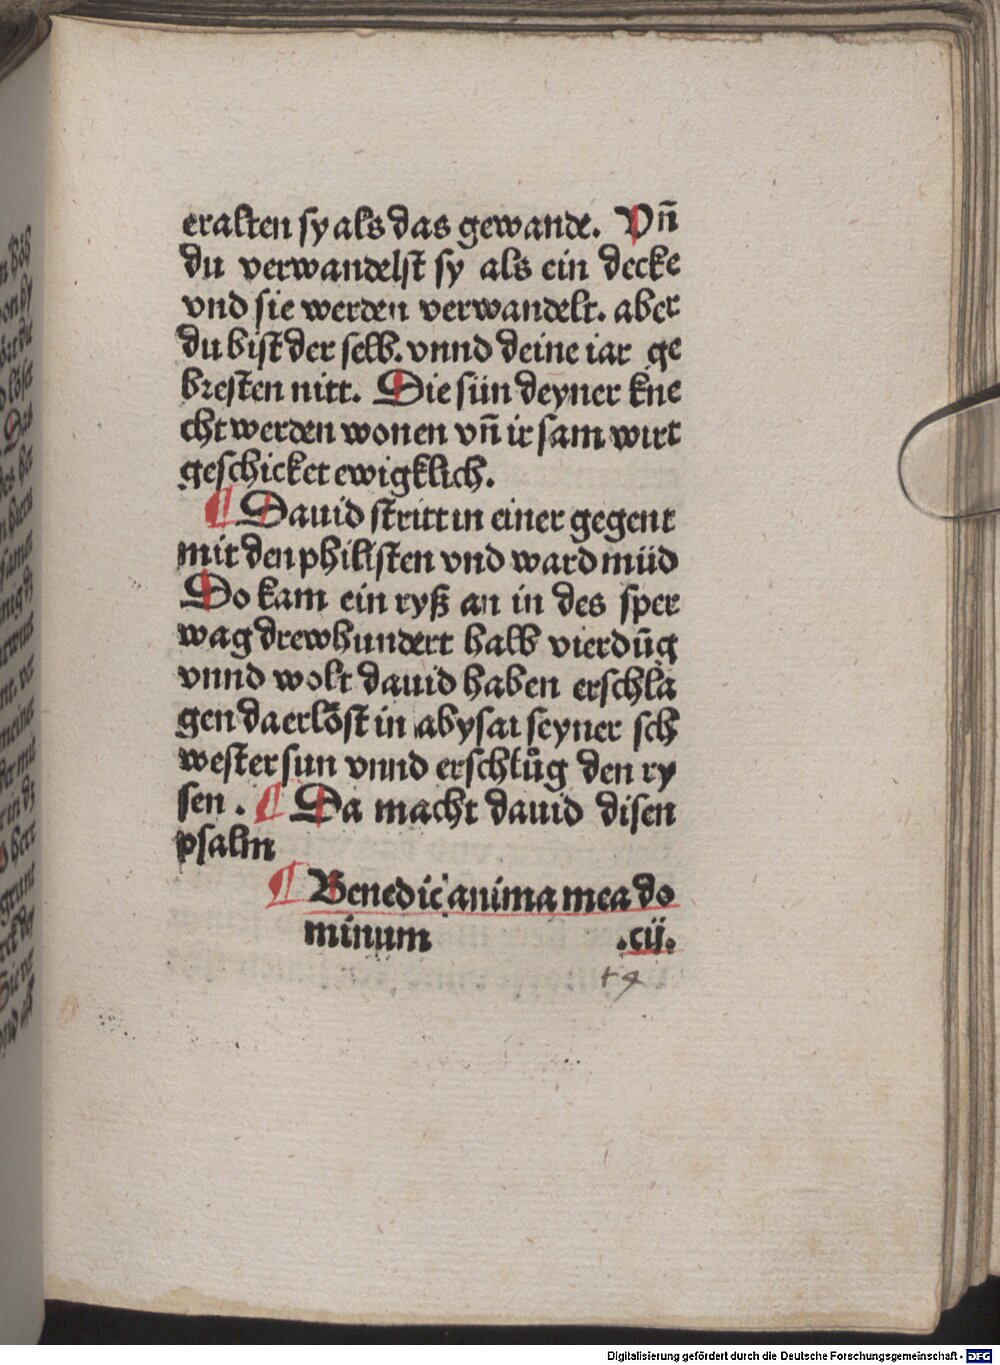 eralten sy als das gewande. Vn̄
du verwandelst sy als ein decke
vnd sie werden verwandelt. aber
du bist der selb. vnnd deine iar ge
bresten nitt. Die sün deyner kne
cht werden wonen vn̄ ir sam wirt
geschicket ewigklich.
¶ Dauid stritt in einer gegent
mit den philisten vnd ward müd
Do kam ein ryß an in des sper
wag drewhundert halb vierdūg
vnnd wolt dauid haben erschla
gen da erlöst in abysai seyner sch
wester sun vnnd erschlůg den ry
sen . ¶ Da macht dauid disen
psalm
¶ Benedic anima mea do
minum .cij.
Digitalisierung gefördert durch die Deutsche Forschungsgemeinschaft - DFG